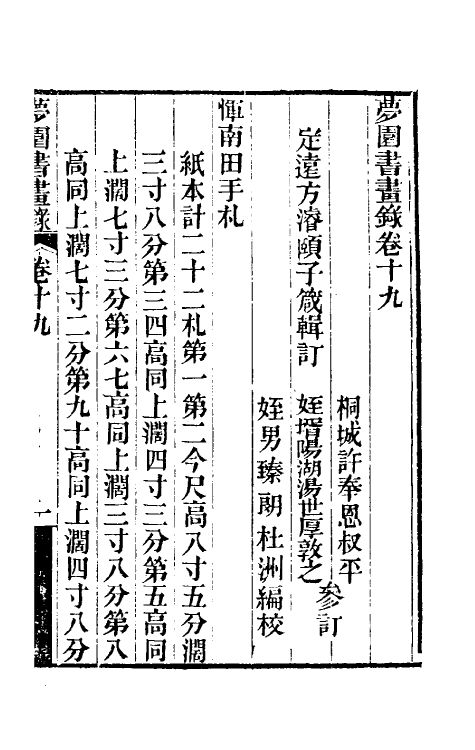 夢園書畫錄卷十九
桐城許奉恩叔平
定遠方濬頤子箴輯訂
姪壻陽湖湯世厚敦之
參訂
姪男臻朗杜洲編校
惲南田手札
紙本計二十二札第一第二今尺高八寸五分濶
三寸八分第三四高同上濶四寸三分第五高同
上濶七寸三分第六七高同上濶三寸八分第八
高同上濶七寸二分第九十高同上濶四寸八分
夢園書畫錄
卷十九
一